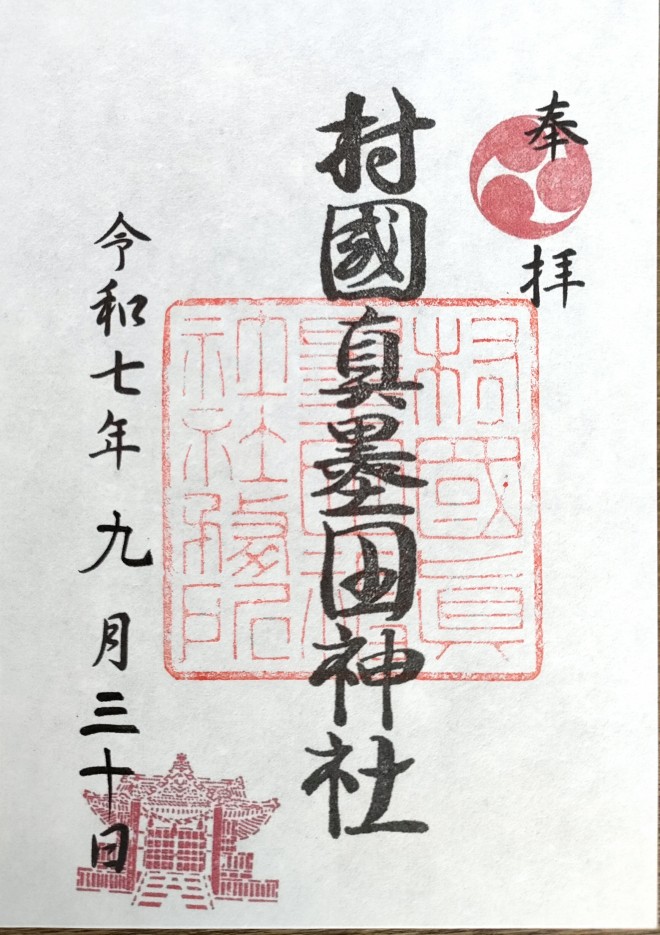 奉拝
村國真墨田神社
令和七年九月三十日
村國眞
墨田神
社社務所